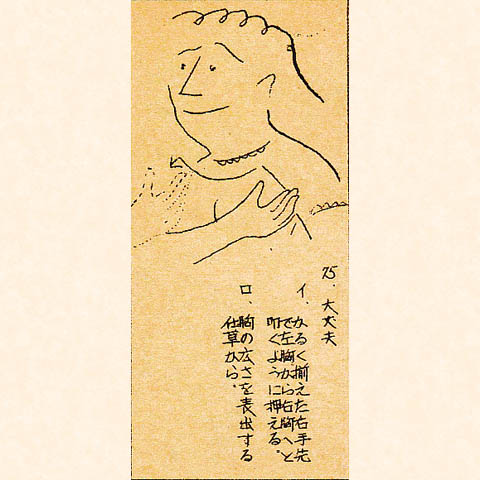 75. 大丈夫
イ、かるく揃えた右手先
で左胸から右胸へと
叩くように押える。
ロ、胸の広さを表出する
仕草から。